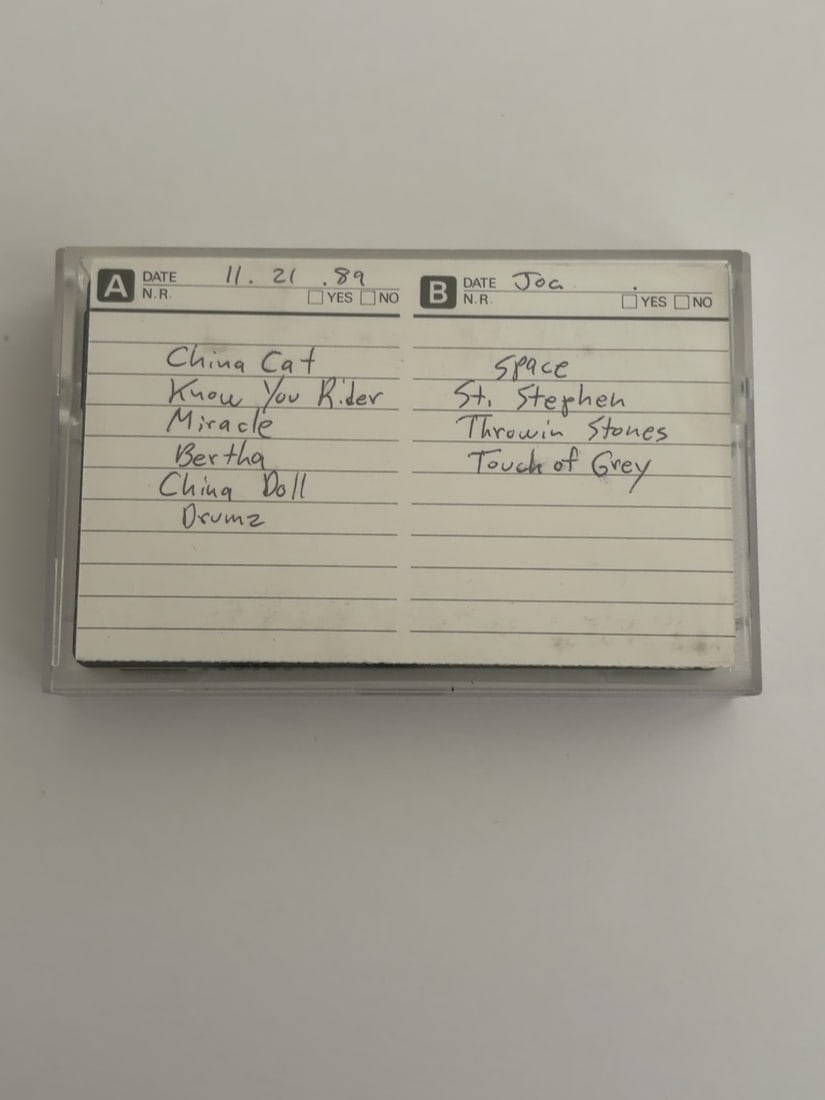 A DATE 11. 21 .89
N.R. YES NO
China Cat
Know You Rider
Miracle
Bertha
China Doll
Drumz
B DATE Joa .
N.R. YES NO
Space
St. Stephen
Throwin Stones
Touch of Grey